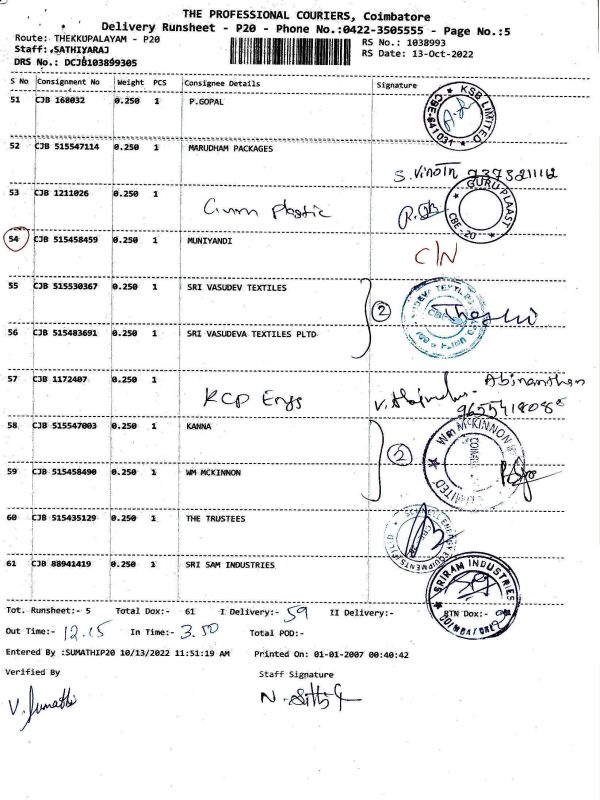 THE PROFESSIONAL COURIERS, Coimbatore
Delivery Runsheet - P20 - Phone No.:0422-3505555 - Page No.:5
Route: THEKKUPALAYAM - P20 RS No.: 1038993
Staff: SATHIYARAJ RS Date: 13-Oct-2022
DRS No.: DCJB103899305
S No Consignment No Weight PCS Consignee Details Signature
51 CJB 168032 0.250 1 P.GOPAL
KSB LIMITED CBE-641031
52 CJB 515547114 0.250 1 MARUDHAM PACKAGES
S. Vinoth
53 CJB 1211026 0.250 1
Plastic
GURU PLAAST CBE-20
54 CJB 515458459 0.250 1 MUNIYANDI
C/N
55 CJB 515530367 0.250 1 SRI VASUDEV TEXTILES
2
56 CJB 515483691 0.250 1 SRI VASUDEVA TEXTILES PLTD
57 CJB 1172407 0.250 1
KCP Engg
Abinanthan
58 CJB 515547003 0.250 1 KANNA
2
Wm McKINNON
59 CJB 515458490 0.250 1 WM MCKINNON
60 CJB 515435129 0.250 1 THE TRUSTEES
61 CJB 88941419 0.250 1 SRI SAM INDUSTRIES
SRIRAM INDUSTRIES COIMBATORE
Tot. Runsheet:- 5 Total Dox:- 61 I Delivery:- 59 II Delivery:- RTN Dox:-
Out Time:- 12.15 In Time:- 3.50 Total POD:-
Entered By :SUMATHIP20 10/13/2022 11:51:19 AM Printed On: 01-01-2007 00:40:42
Verified By Staff Signature
V. Sumathi